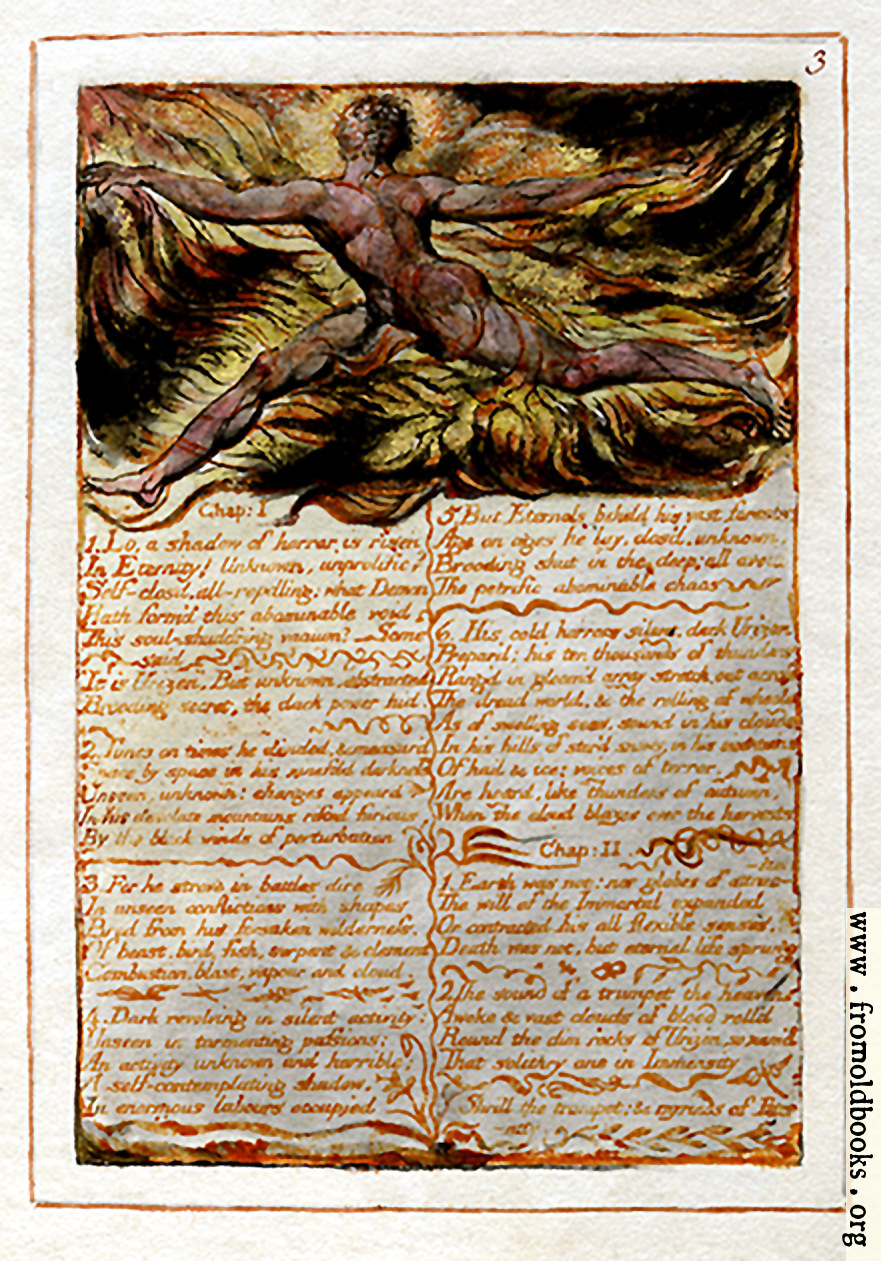 3
Chap: I
1. Lo, a shadow of horror is risen
In Eternity! Unknown, unprolific?
Self-closd, all-repelling: what Demon
Hath form'd this abominable void
This soul-shudd'ring vacuum? — Some
said
It is Urizen, But unknown, abstracted
Brooding secret, the dark power hid.
2. Times on times he divided, & measur'd
Space by space in his ninefold darkness
Unseen, unknown: changes appeard
In his desolate mountains rifted furious
By the black winds of perturbation
3. For he strove in battles dire
In unseen conflictions with shapes
Bred from his forsaken wilderness,
Of beast, bird, fish, serpent & element
Combustion, blast, vapour and cloud.
4. Dark revolving in silent activity:
Unseen in tormenting passions;
An activity unknown and horrible;
A self-contemplating shadow,
In enormous labours occupied
5. But Eternals beheld his vast forests
Age on ages he lay, clos'd, unknown,
Brooding shut in the deep; all avoid
The petrific abominable chaos
6. His cold horrors silent, dark Urizen
Prepar'd; his ten thousands of thunders
Rang'd in gloom'd array stretch out across
The dread world, & the rolling of wheels
As of swelling seas, sound in his clouds
In his hills of stor'd snows, in his mountains
Of hail & ice; voices of terror,
Are heard, like thunders of autumn,
When the cloud blazes over the harvests
Chap: II
1. Earth was not: nor globes of attrac-
-tion
The will of the Immortal expanded
Or contracted his all flexible senses.
Death was not, but eternal life sprung
2. The sound of a trumpet the heavens
Awoke & vast clouds of blood roll'd
Round the dim rocks of Urizen, so nam'd
That solitary one in Immensity
Shrill the trumpet: & myriads of Eter-
-nity
www.fromoldbooks.org